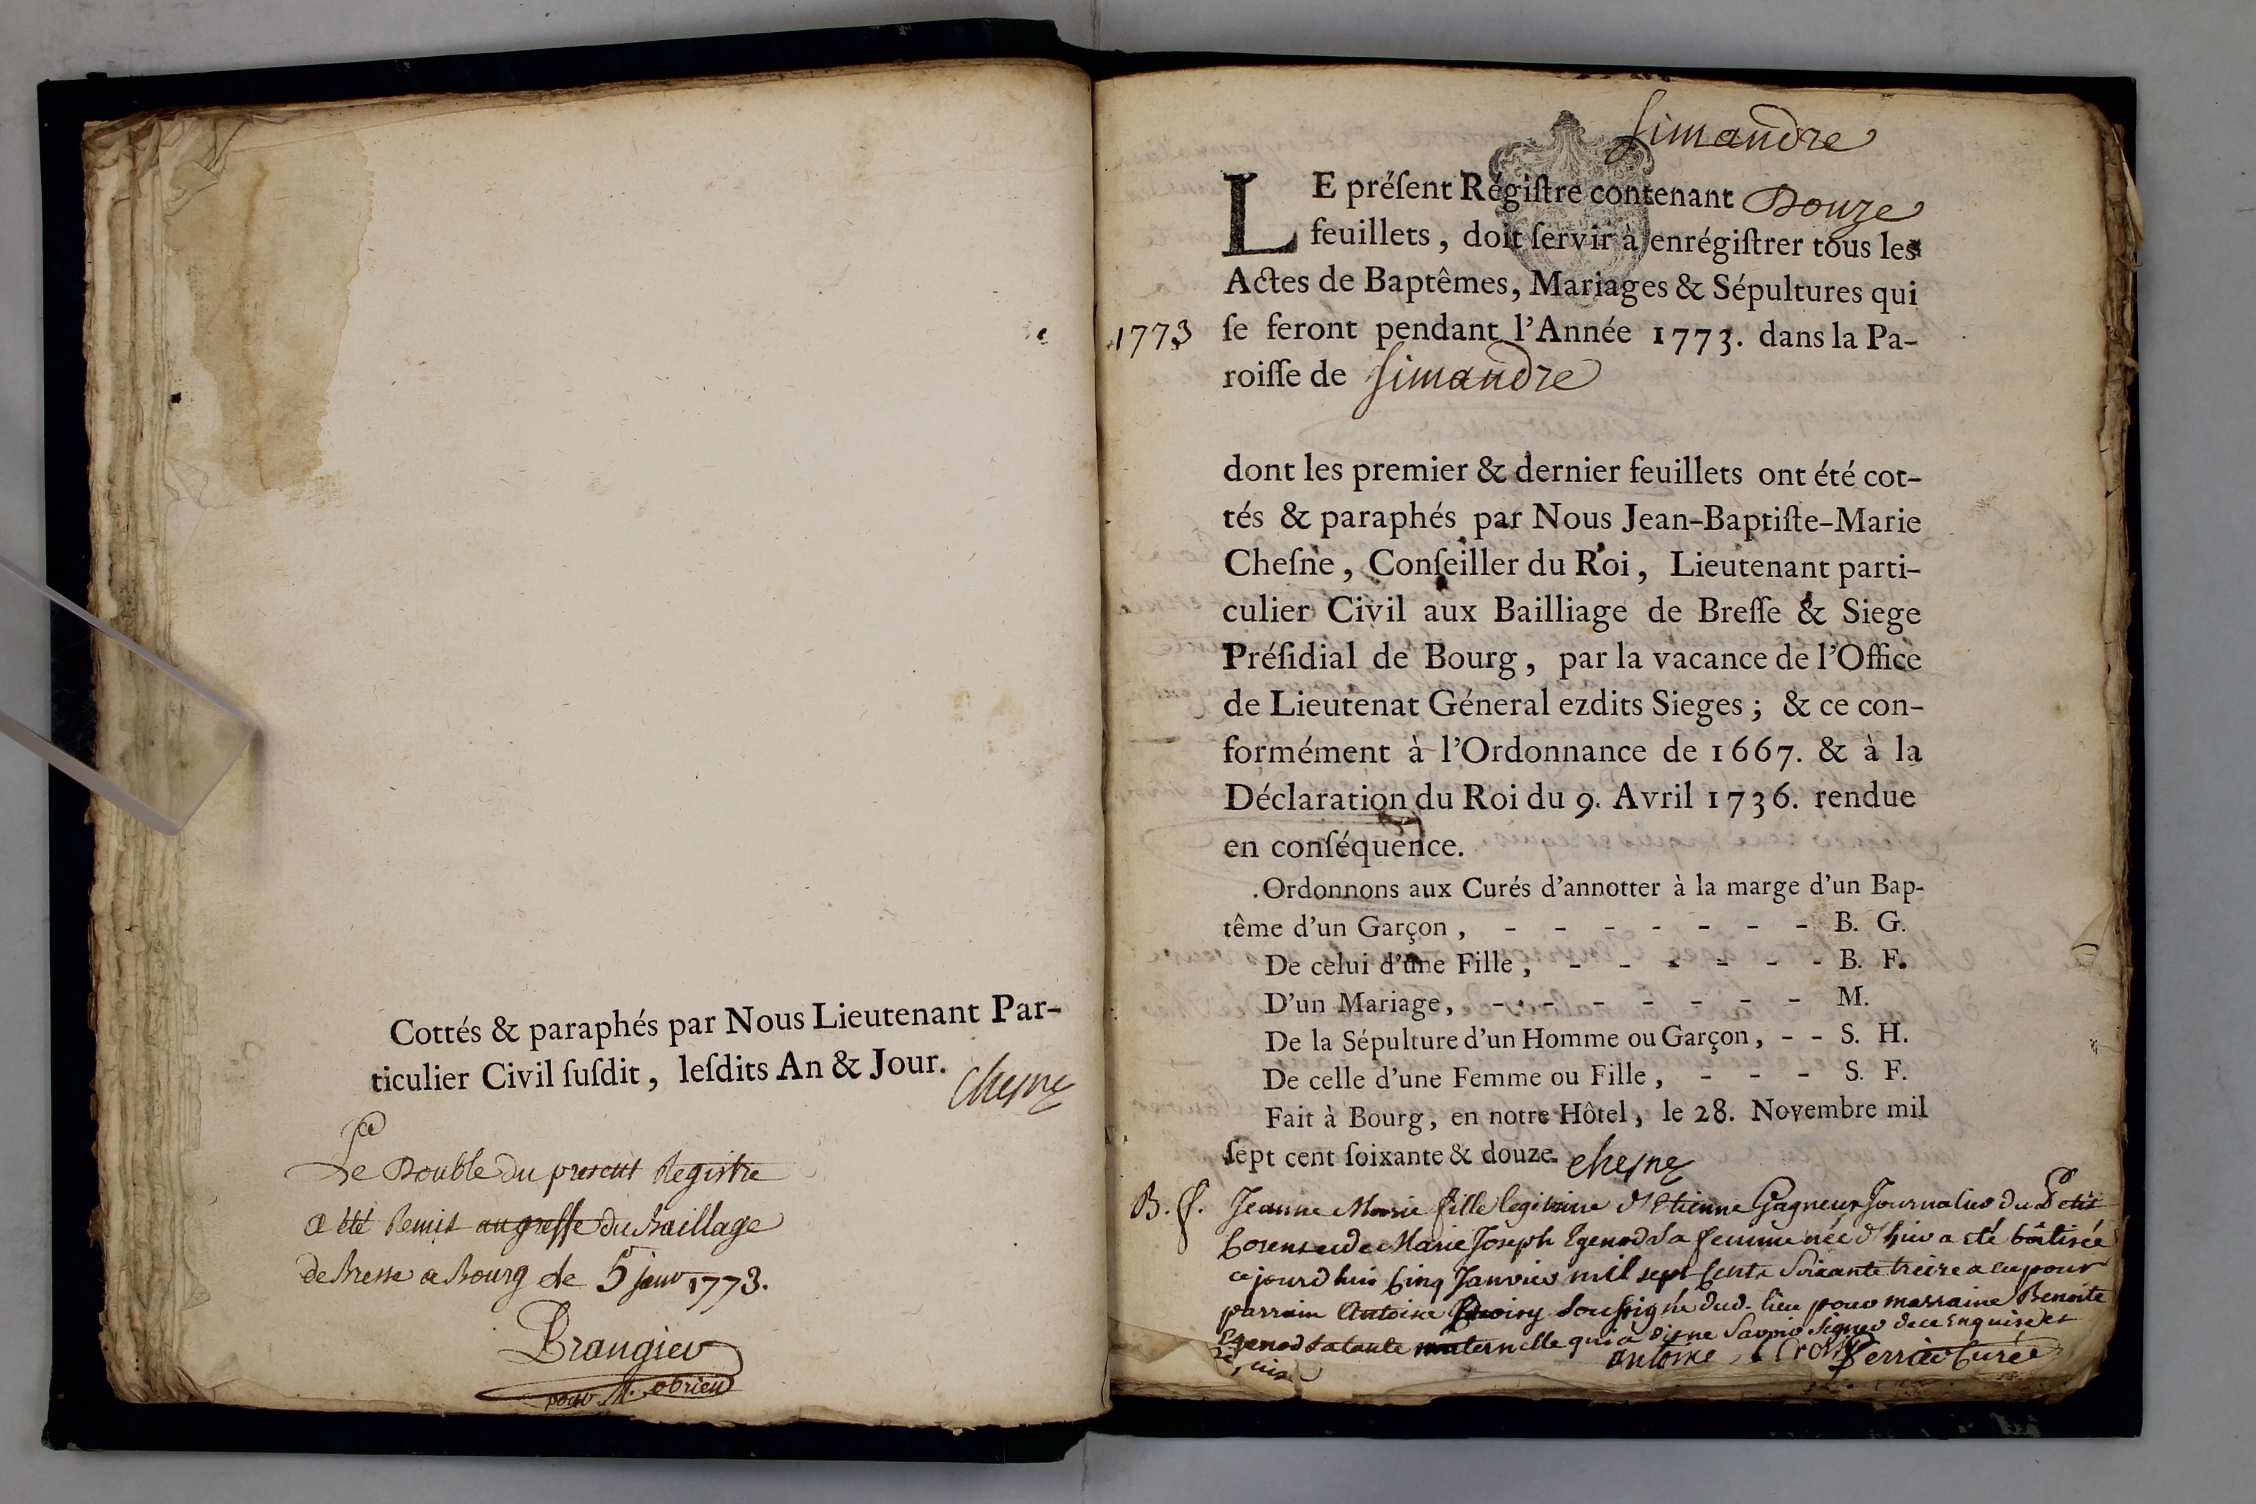 Cottés & paraphés par Nous Lieutenant Par-
ticulier Civil ſuſdit, leſdits An & Jour.
Chesne
Le Double du present Registre
a été Remis au greffe du Baillage
de Bresse a Bourg le 5 janv 1773.
Brangier
pour M. obrien
Simandre
LE préſent Régiſtre contenant Douze
feuillets, doit ſervir à enrégiſtrer tous les
Actes de Baptêmes, Mariages & Sépultures qui
1773
ſe feront pendant l'Année 1773. dans la Pa-
roiſſe de Simandre
dont les premier & dernier feuillets ont été cot-
tés & paraphés par Nous Jean-Baptiſte-Marie
Cheſne, Conſeiller du Roi, Lieutenant parti-
culier Civil aux Bailliage de Breſſe & Siege
Préſidial de Bourg, par la vacance de l'Office
de Lieutenat Géneral ezdits Sieges; & ce con-
formément à l'Ordonnance de 1667. & à la
Déclaration du Roi du 9. Avril 1736. rendue
en conſéquence.
Ordonnons aux Curés d'annotter à la marge d'un Bap-
tême d'un Garçon, - - - - - - - B. G.
De celui d'une Fille, - - - - - - B. F.
D'un Mariage, - - - - - - - M.
De la Sépulture d'un Homme ou Garçon, - - S. H.
De celle d'une Femme ou Fille, - - - S. F.
Fait à Bourg, en notre Hôtel, le 28. Novembre mil
ſept cent ſoixante & douze. Chesne
B. f. Jeanne Marie fille legitime d'Etienne Gagneur Journalier du Petit
Corent et de Marie Joseph Egenod Sa femme née d'hier a eté bâtisée
cejourdhui Cinq Janvier mil sept Cents Soixante treize a eu pour
parrain Antoine soussigné dud. lieu pour marraine Benoite
Egenod Sa tante maternelle qui a dit ne Savoir Signer de ce Enquise et
Requise
antoine Perrier Curé